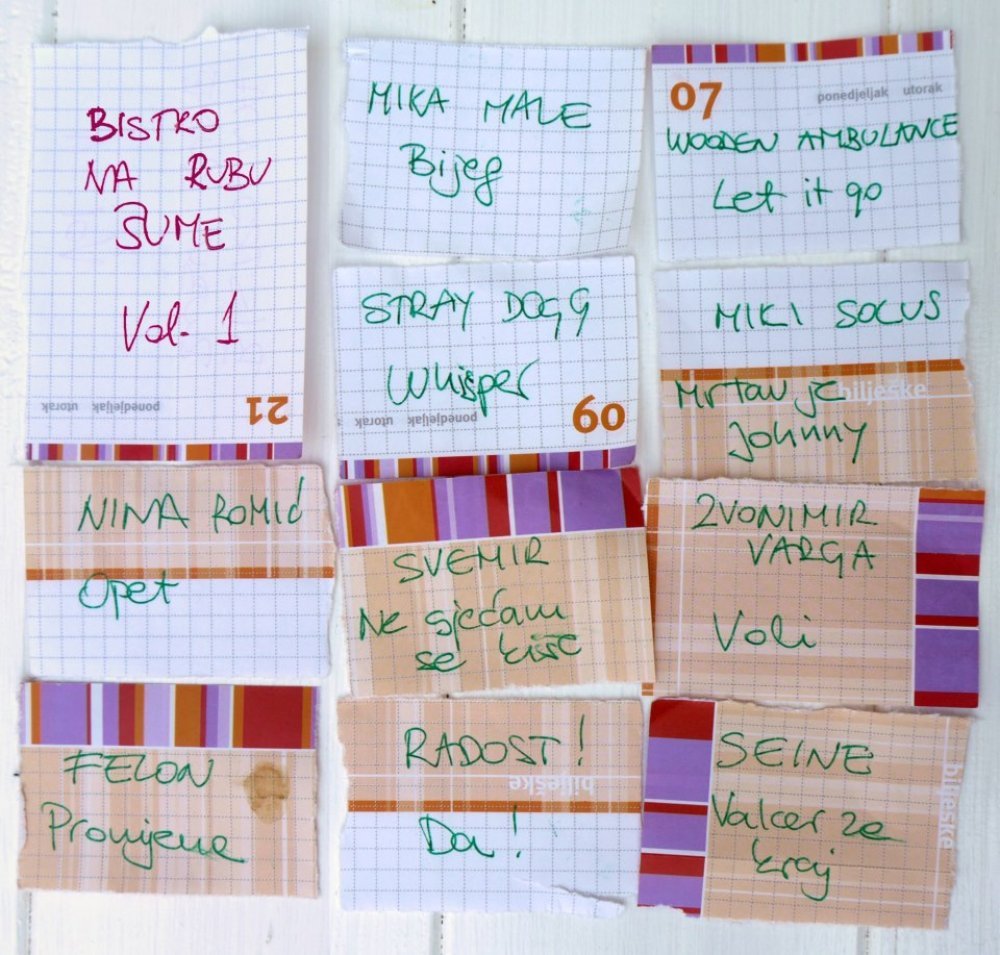 BISTRO
NA RUBU
ŠUME
Vol. 1
ponedjeljak utorak
21
MIKA MALE
Bijeg
07
ponedjeljak utorak
WOODEN AMBULANCE
Let it go
STRAY DOGG
Whisper
ponedjeljak utorak
09
MIKI SOLUS
bilješke
Mrtav je
Johnny
NINA ROMIĆ
Opet
SVEMIR
Ne sjećam
se kiše
ZVONIMIR
VARGA
Voli
FELON
Promjene
RADOST!
bilješke
Da!
SEINE
Valcer za
kraj
bilješke